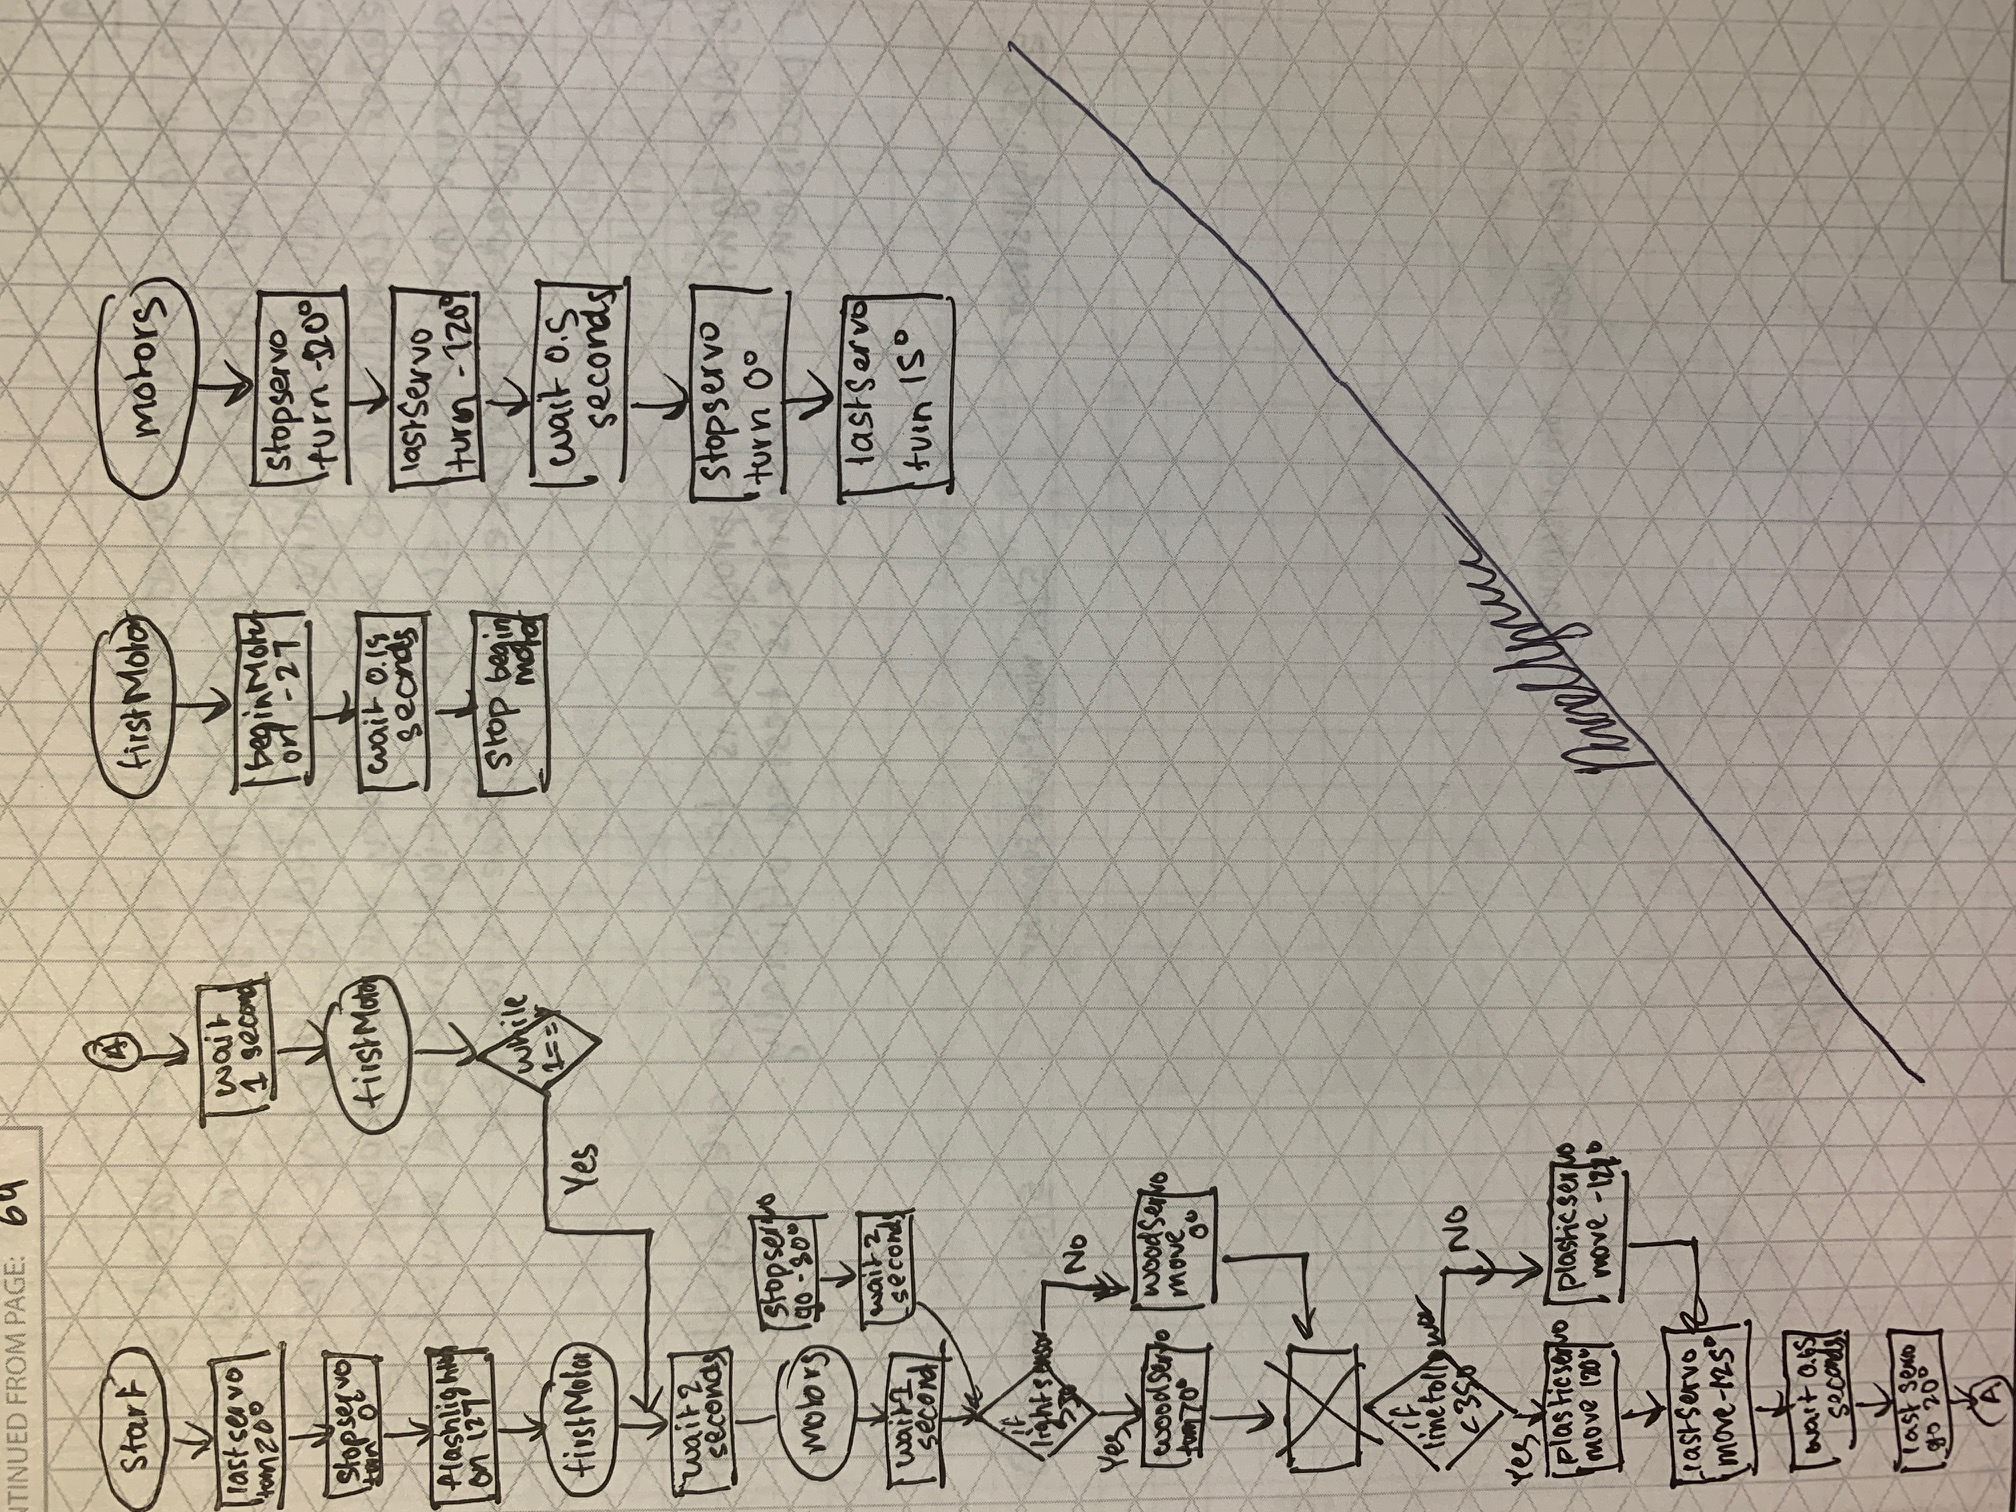 NTINUED FROM PAGE: 69
start
lastservo
turn 20°
stopservo
turn 0°
flashlight
on 127
firstMotor
wait 2
seconds
motors
wait 1
second
stopservo
go -80°
wait 2
seconds
if
lightsensor
Yes
No
woodservo
turn 70°
woodServo
move
0°
if
linefollower
<350
Yes
NO
plasticservo
move 120°
plasticservo
move
lastServo
move -125°
wait 0.65
seconds
last servo
go 20°
A
A
wait
1 second
firstMotor
while
1==1
Yes
firstMotor
beginMotor
on -27
wait 0.15
seconds
stop begin
motor
motors
stopservo
turn
lastServo
turn -120°
wait 0.5
seconds
stopservo
turn 0°
lastServo
turn 15°